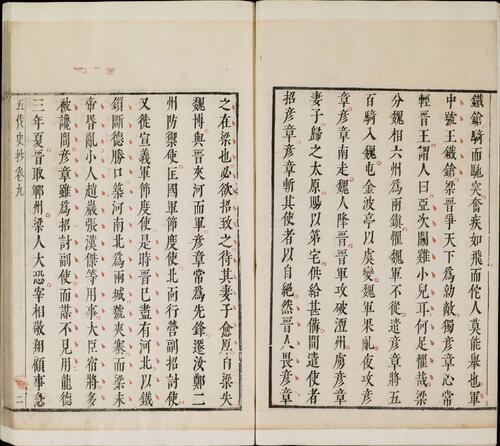 鐵鎗騎而馳突奮疾如飛而佗人莫能舉也軍
中號王鐵鎗梁晉爭天下爲勍敵獨彥章心常
輕晉王謂人曰亞次鬬雞小兒耳何足懼哉梁
分魏相六州爲兩鎭懼魏軍不從遣彥章將五
百騎入魏屯金波亭以虞變魏軍果亂夜攻彥
章彥章南走魏人降晉晉軍攻破澶州虜彥章
妻子歸之太原賜以第宅供給甚備間遣使者
招彥章彥章斬其使者以自絕然晉人畏彥章
之在梁也必欲招致之待其妻子愈厚自梁失
魏博與晉夾河而軍彥章常爲先鋒遷汝鄭二
州防禦使匡國軍節度使北面行營副招討使
又徙宣義軍節度使是時晉已盡有河北以鐵
鎖斷德勝口築河南北爲兩城號夾寨而梁末
帝昏亂小人趙巖張漢傑等用事大臣宿將多
被讒間彥章雖爲招討副使而謀不見用龍德
三年夏晉取鄆州梁人大恐宰相敬翔顧事急
五代史抄卷九